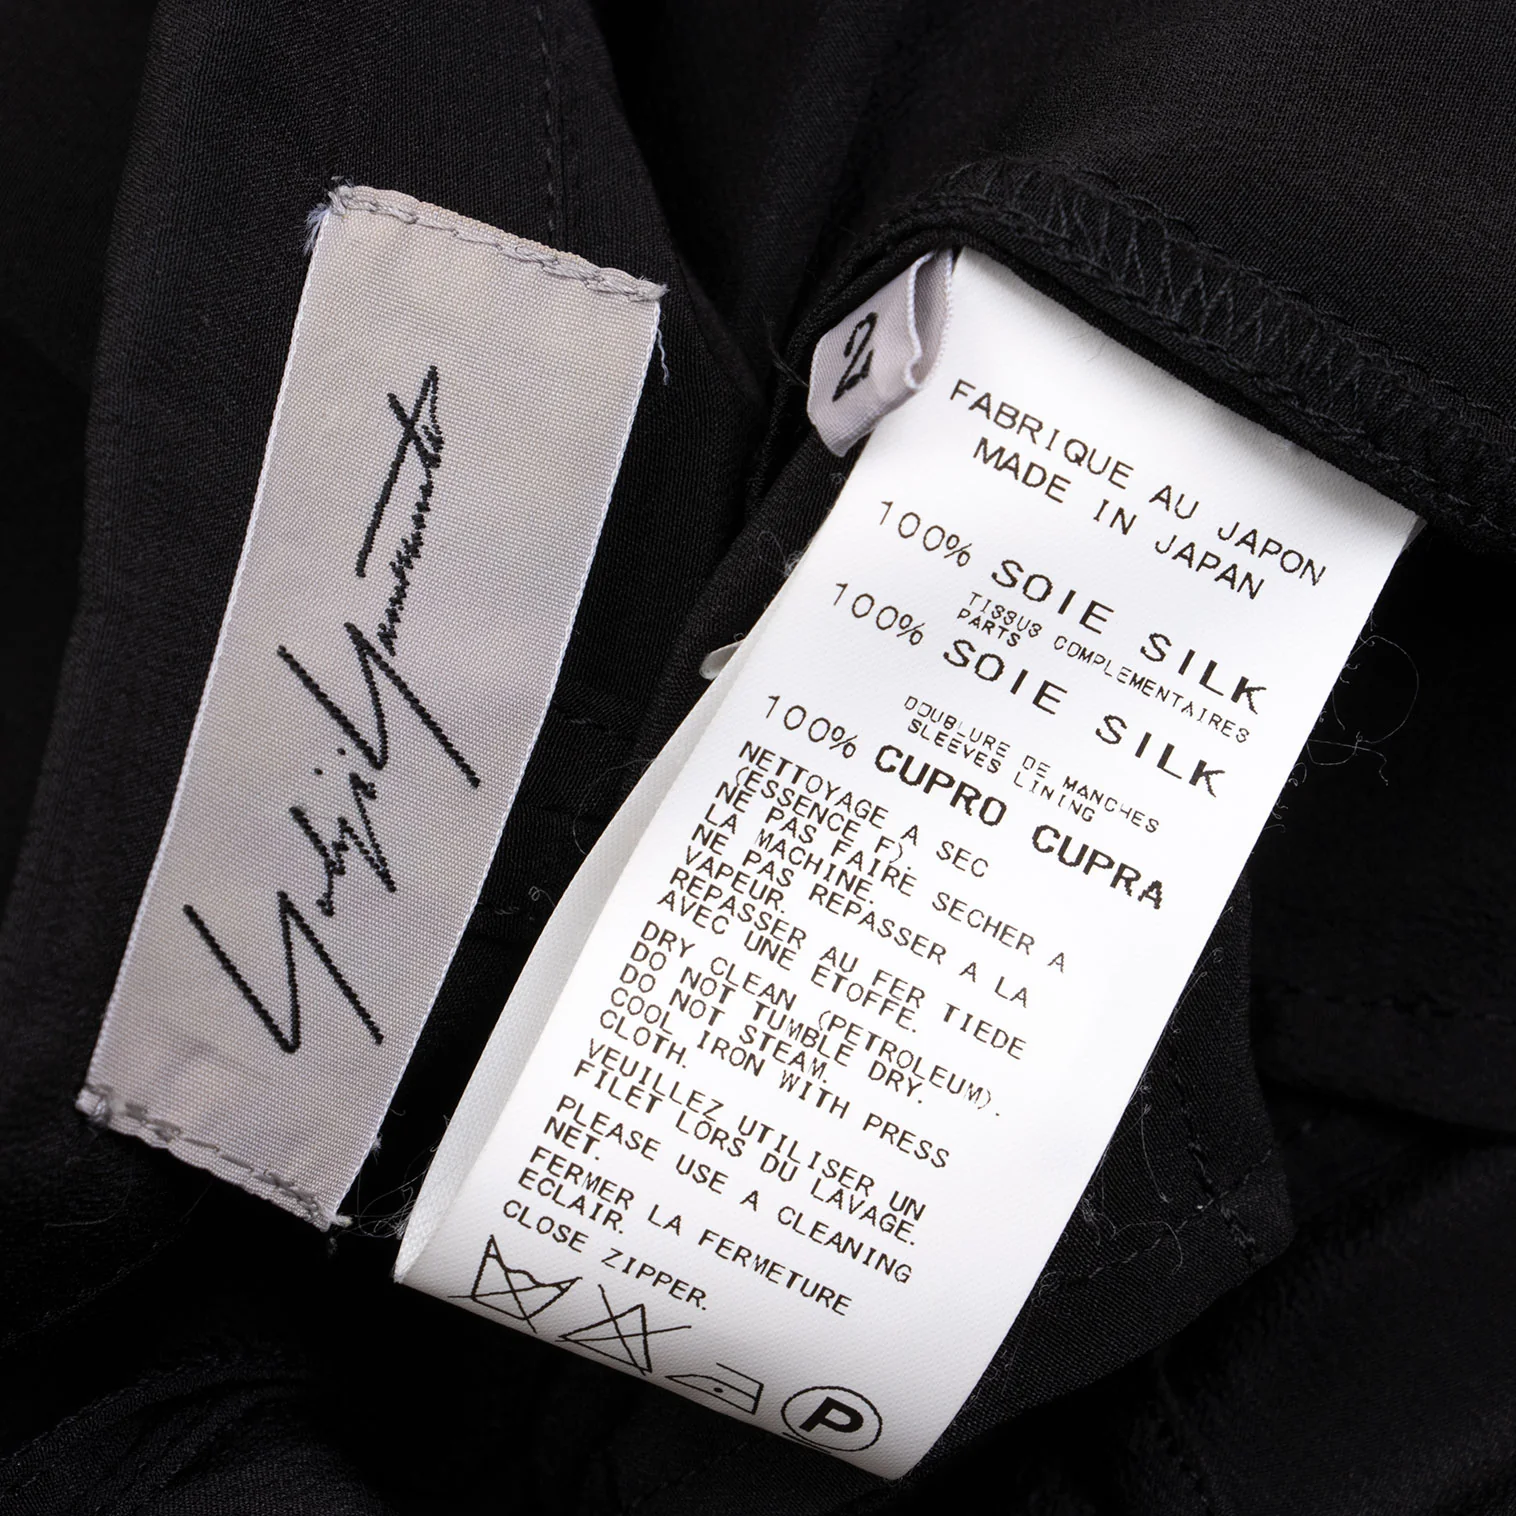 Yohji Yamamoto
2
FABRIQUE AU JAPON
MADE IN JAPAN
100% SOIE SILK
TISSUS COMPLEMENTAIRES
PARTS
100% SOIE SILK
DOUBLURE DE MANCHES
SLEEVES LINING
100% CUPRO CUPRA
NETTOYAGE A SEC
(ESSENCE F).
NE PAS FAIRE SECHER A
LA MACHINE.
NE PAS REPASSER A LA
VAPEUR.
REPASSER AU FER TIEDE
AVEC UNE ETOFFE.
DRY CLEAN (PETROLEUM).
DO NOT TUMBLE DRY.
DO NOT STEAM.
COOL IRON WITH PRESS
CLOTH.
VEUILLEZ UTILISER UN
FILET LORS DU LAVAGE.
PLEASE USE A CLEANING
NET.
FERMER LA FERMETURE
ECLAIR.
CLOSE ZIPPER.
P